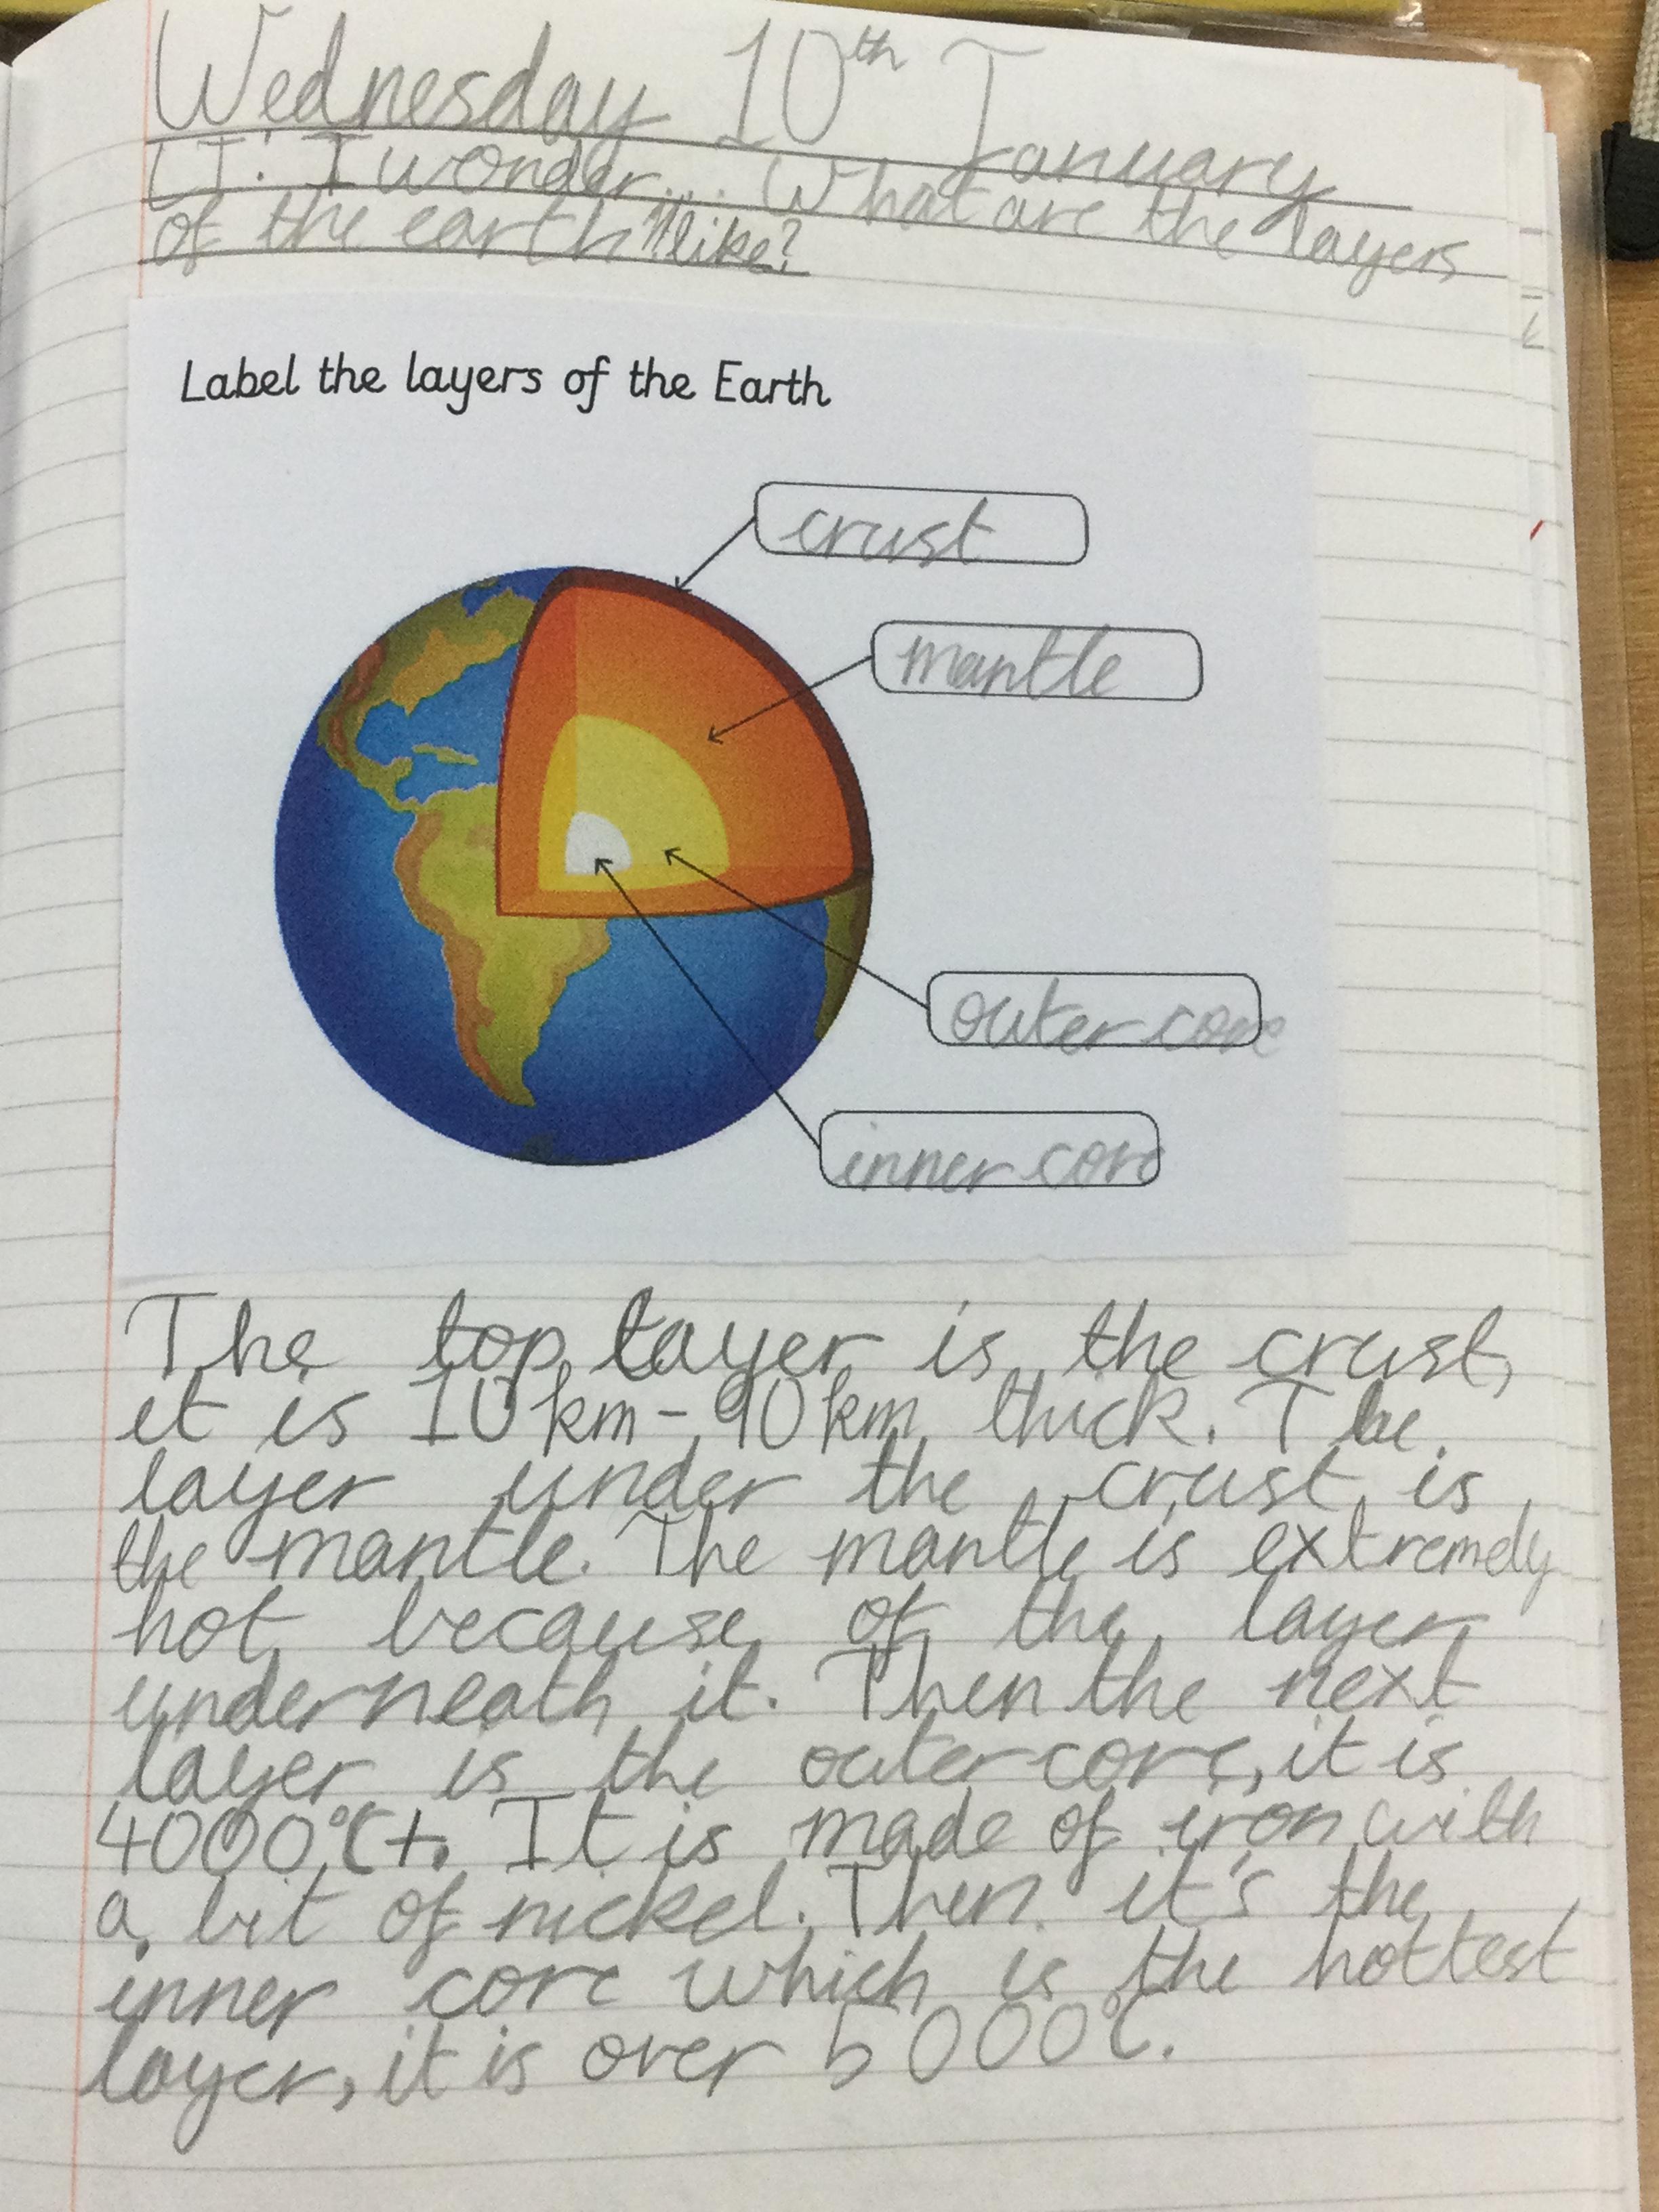 Wednesday 10th January
LI: I wonder... What are the layers
of the earth like?
Label the layers of the Earth
crust
mantle
outer core
inner core
The top layer is the crust,
it is 10km-90km thick. The
layer under the crust is
the mantle. The mantle is extremely
hot because of the layer
underneath it. Then the next
layer is the outer core, it is
4000°C+. It is made of iron with
a bit of nickel. Then it's the
inner core which is the hottest
layer, it is over 5000°C.